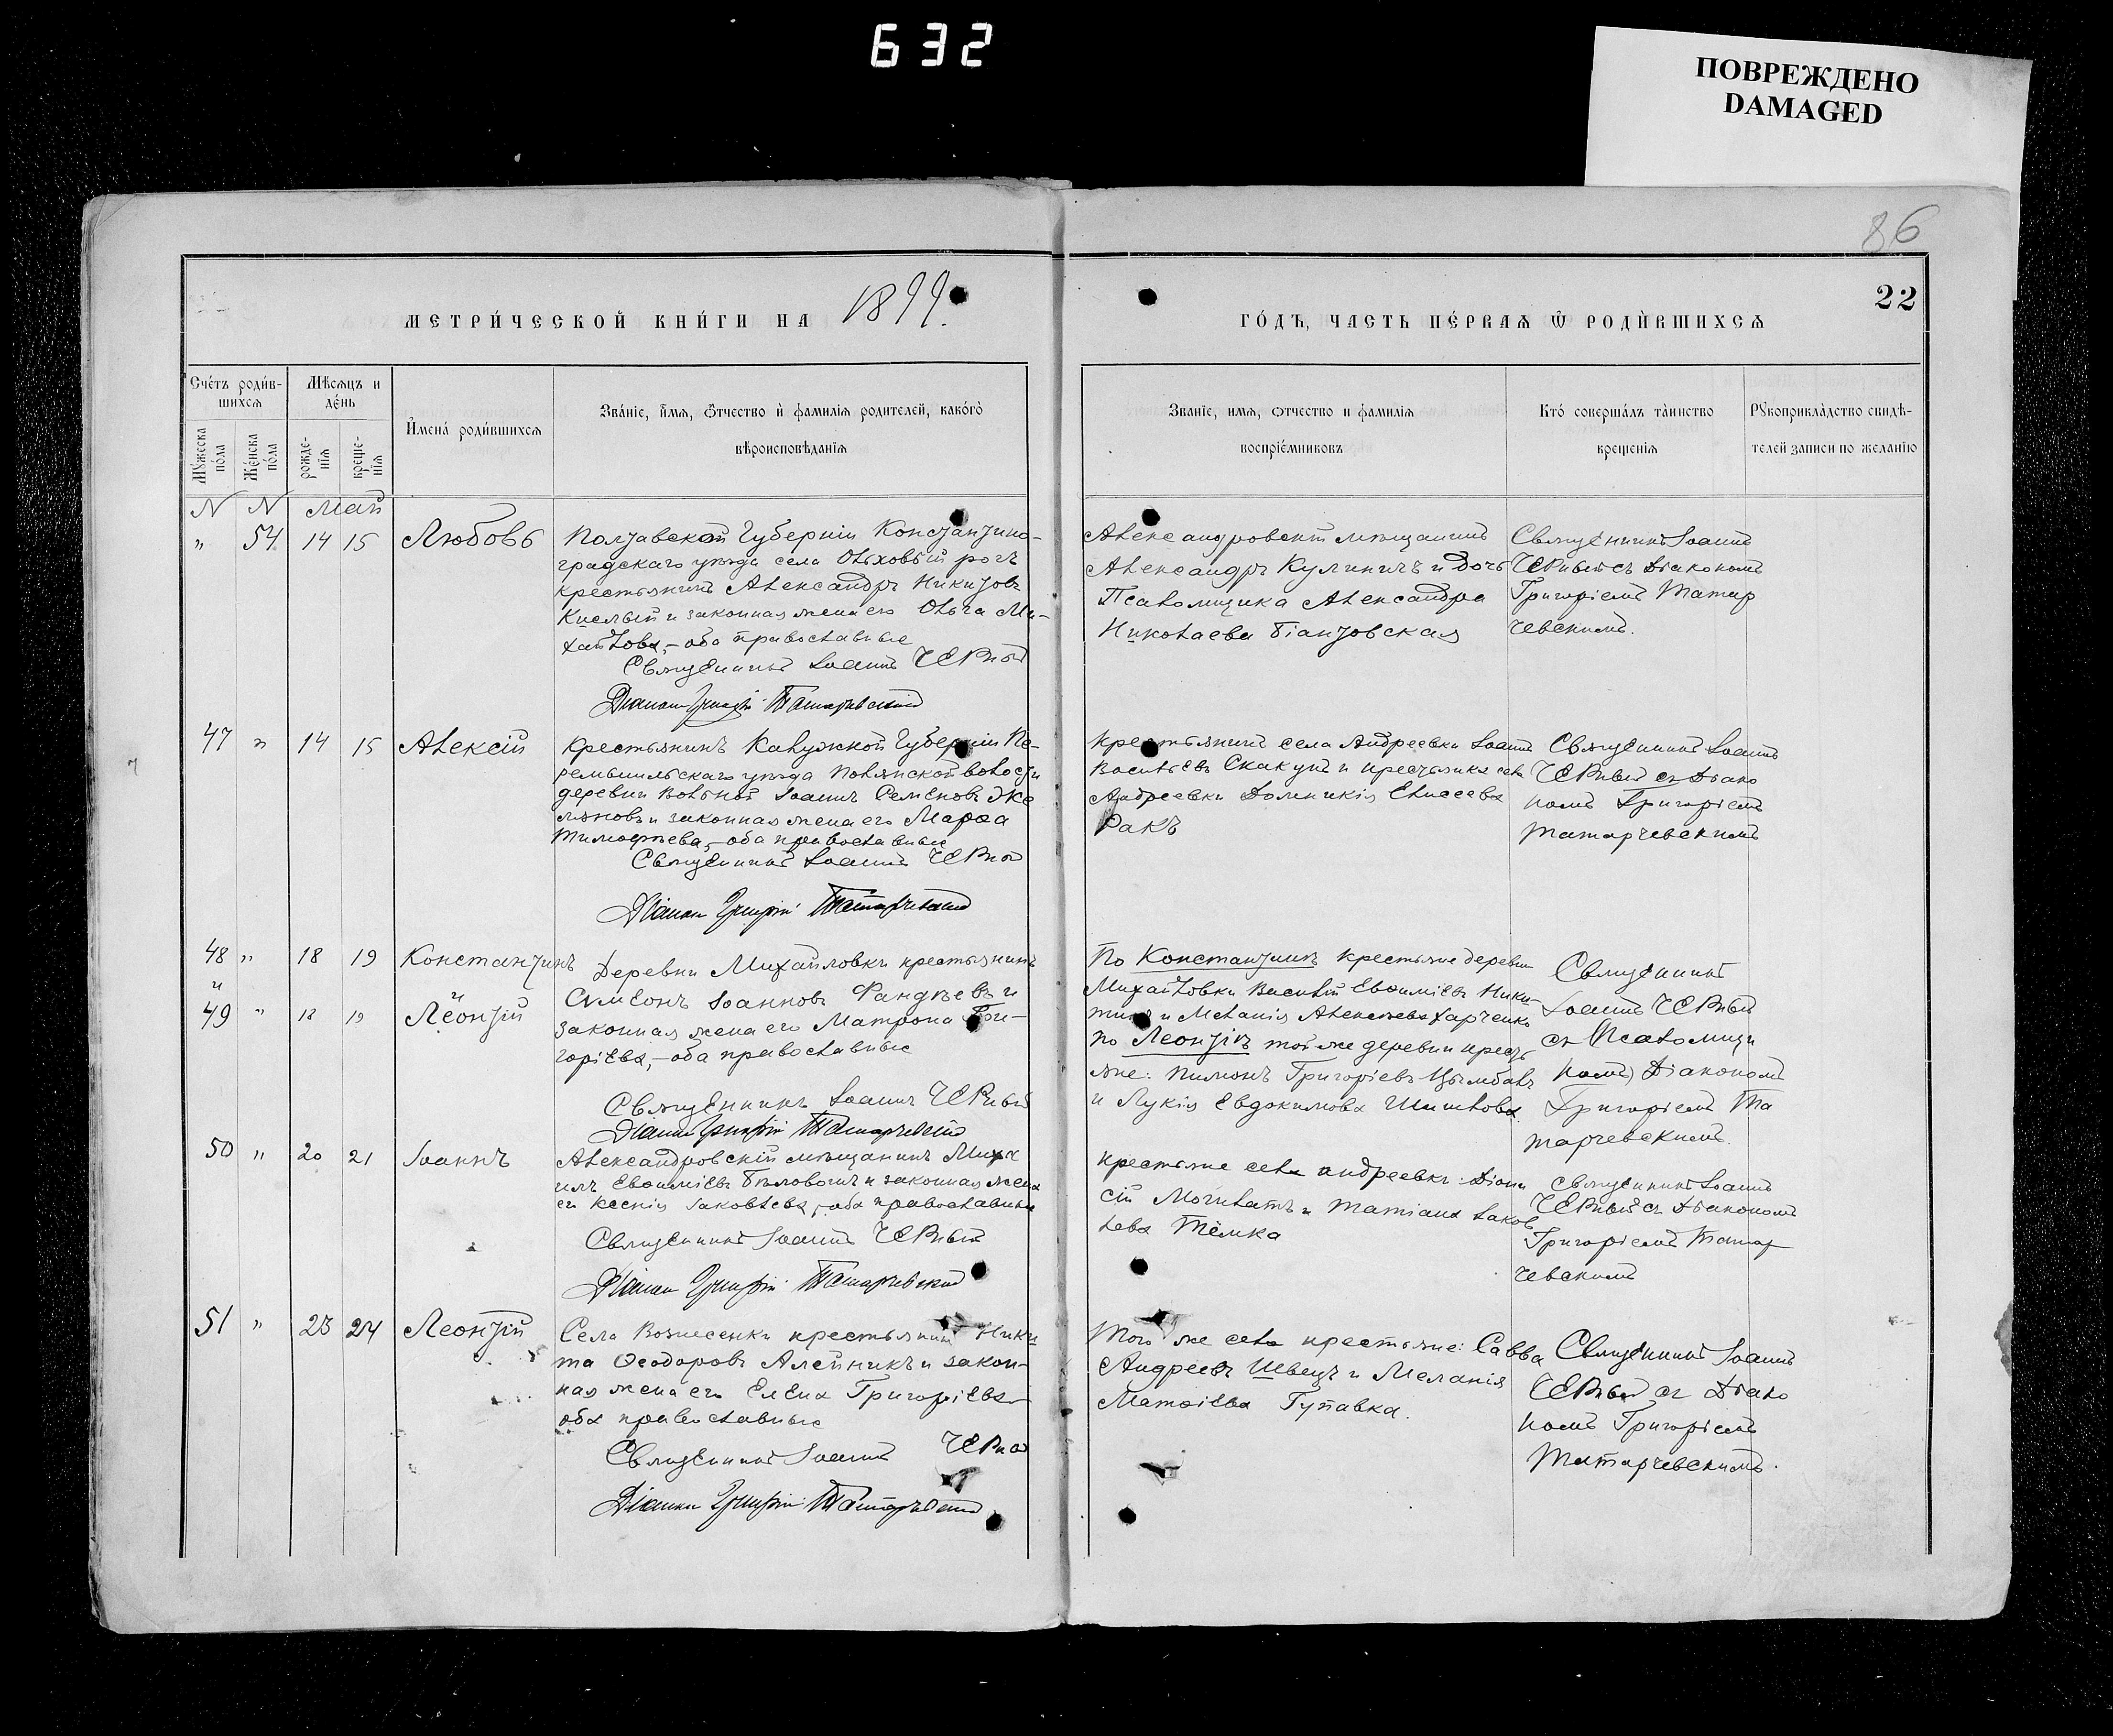 632
ПОВРЕЖДЕНО
DAMAGED
86
22
МЕТРИ́ЧЕСКОЙ КНИ́ГИ НА 1899.
ГО́ДЪ, ЧАСТЬ ПЕ́РВАѦ Ѿ РОДИ́ВШИХСѦ
Сче́тъ роди́в-
шихсѧ
Мѣсѧцъ и
де́нь
Мꙋжеска
по́ла
Же́нска
по́ла
рожде-
нїѧ
креще-
нїѧ
И҆мена̀ роди́вшихсѧ
Зва́нїе, и҆́мѧ, ѻ҆́тчество и҆ фамилїѧ родителей, како́гѡ
вѣроисповѣданїѧ
Званїе, имѧ, ѻтчество и фамилїѧ
воспрїе́мниковъ
Кто́ соверша́лъ та́инство
крещенїѧ
Рꙋкоприкла́дство свидѣ-
телей записи по желанїю
N N Май
" 54 14 15 Любовь
Полтавской Губерніи Константино-
градскаго уѣзда села Ольховый рогъ
крестьянинъ Александръ Никитовъ
Кислый и законная жена его Ольга Ми-
хайлова,–оба православные
Священникъ Іоаннъ Черный
Діаконъ Григорій Татарчевскій
Александровскій мѣщанинъ
Александръ Кулиничъ и дочь
Псаломщика Александра
Николаева Біантовская
Священникъ Іоаннъ
Черный съ Діакономъ
Григоріемъ Татар
чевскимъ.
47 " 14 15 Алексій
Крестьянинъ Калужской Губерніи Пе-
ремышльскаго уѣзда Полянской волости
деревни Вольной Іоаннъ Семеновъ
и законная жена его Марѳа
Тимофѣева,–оба православные
Священникъ Іоаннъ Черный
Діаконъ Григорій Татарчевскій
Крестьянинъ села Андреевки Іоаннъ
Васильевъ Скакунъ и крестьянка села
Андреевки Домникія Елисеева
Ракъ
Священникъ Іоаннъ
Черный съ Діако
номъ Григоріемъ
Татарчевскимъ
48 " 18 19 Константинъ
и и
49 " 18 19 Леонтій
Деревни Михайловки крестьянинъ
Симеонъ Іоанновъ Фандѣевъ и
законная жена его Матрона Гри-
горіева,–оба православные
Священникъ Іоаннъ Черный
Діаконъ Григорій Татарчевскій
По Константинѣ крестьяне деревни
Михайловки Василій Евѳиміевъ Ники-
тинъ и Меланія Алексѣева Харченко
по Леонтіѣ той же деревни кресть
яне: Пимонъ Григоріевъ Цымбалъ
и Лукія Евдокимова Шишлова.
Священникъ
Іоаннъ Черный
съ Псаломщи
комъ Діакономъ
Григоріемъ Та
тарчевскимъ.
50 " 20 21 Іоаннъ
Александровскій мѣщанинъ Миха
илъ Евѳиміевъ Бѣловолъ и законная жена
его Ксенія Іаковлева,–оба православные
Священникъ Іоаннъ Черный
Діаконъ Григорій Татарчевскій
Крестьяне села Андреевки: Діони
сій Могилатъ и Татіана Іаков
лева Тёмка
Священникъ Іоаннъ
Черный съ Діакономъ
Григоріемъ Татар
чевскимъ
51 " 23 24 Леонтій
Села Вознесенки крестьянинъ Ники
та Ѳеодоровъ Алейникъ и закон-
ная жена его Елена Григоріева–
оба православные
Священникъ Іоаннъ Черный
Діаконъ Григорій Татарчевскій
Того же села крестьяне: Савва
Андреевъ Швецъ и Меланія
Матѳіева Гупавка.
Священникъ Іоаннъ
Черный съ Діако
номъ Григоріемъ
Татарчевскимъ.